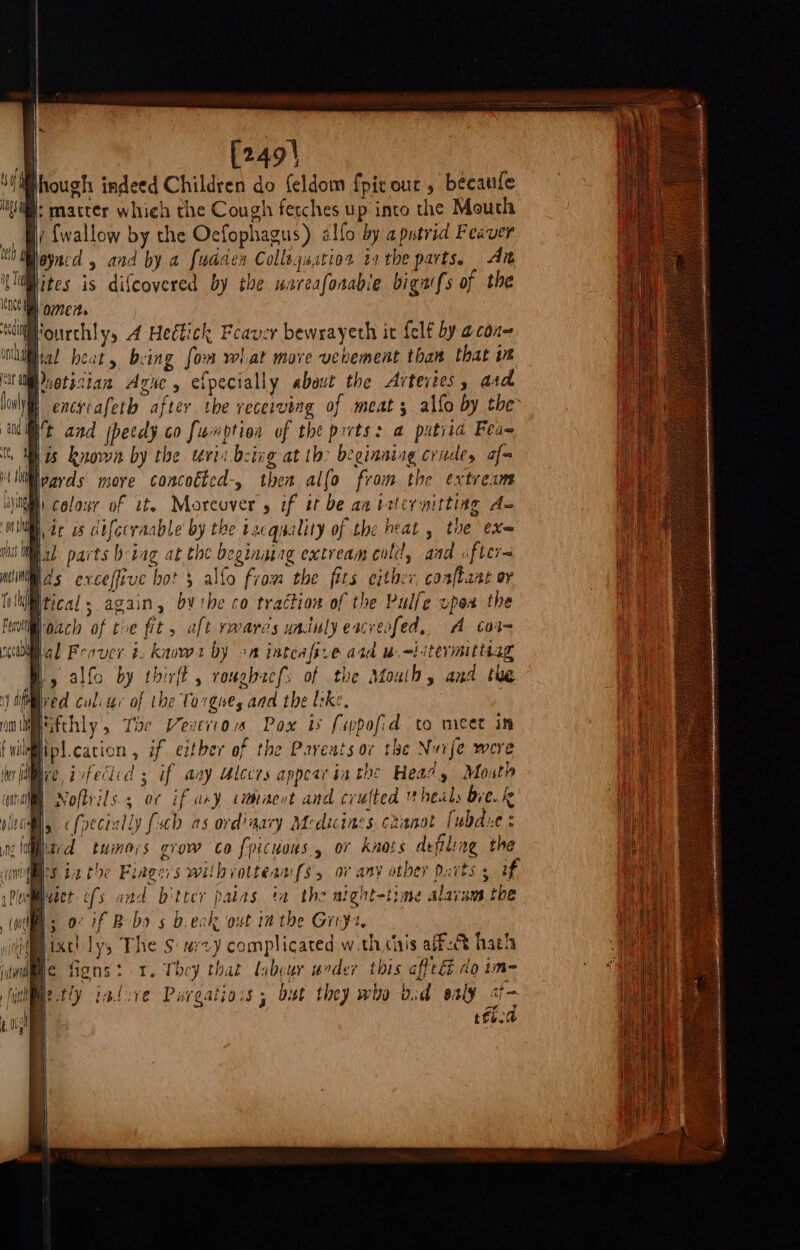 [249]
though indeed Children do ſeldom ſpit out, becauſe
matter which the Cough fetches up into the Mouth
ſwallow by the Oeſophagus) alſo by a putrid Feaver
joyned, and by a ſudden Colliquation in the parts. An
is diſcovered by the unreaſonable bigneſs of the
Fourthly, A Hectick Feaver bewrayeth it ſelf by a con-
heat, being ſom what more vehement than that in
Ague, eſpecially about the Arteries, and
encreaſeth after the receiving of meat; alſo by the
and ſpeedy conſumption of the parts: a putrid Fea-
is known by the urin being at the beginning crude, af-
wards more concocted, then alſo from the extream
colour of it. Moreover, if it be an intermitting A-
it is diſcernable by the inequality of the heat, the ex-
parts being at the beginning extream cold, and after-
exceſſive hot; alſo from the fits either conſtant or
again, by the contraction of the Pulſe upon the
of the fit, aft rwards unduly encreaſed, A con-
Feaver is known by an intenſive and un-intermitting
alſo by thirſt, roughneſs of the Mouth, and the
colour of the Tongue, and the like.
Fifthly, The Venerious Pox is ſuppoſed to meet in
if either of the Parents or the Nurſe were
infected; if any Ulcers appear in the Head, Mouth
Noſtrils; or if any eminent and cruſted wheals break
eſpecially ſuch as ordinary Medicines cannot ſubdue:
hard tumors grow conſpicuous, or knots defiling the
in the Fingers with rottenneſs, or any other parts; if
and bitter pains in the night-time alarum the
or if Bubo's break out in the Groyn.
Sixthly, The Scurvy complicated with this affect hath
ſigns: 1. They that labour under this affect do im-
indure Purgations; but they who bid only af-